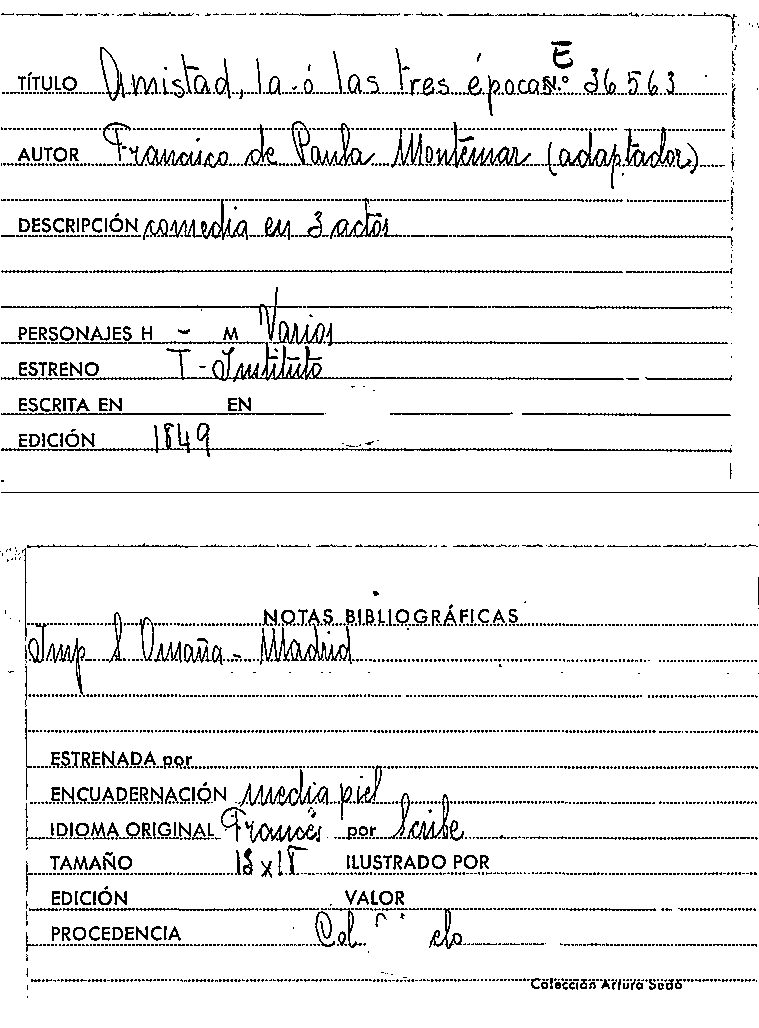 E
TÍTULO Amistad, la ó las tres épocas N.º 36563
AUTOR Francisco de Paula Montemar (adaptador)
DESCRIPCIÓN comedia en 3 actos
PERSONAJES H - M Varios
ESTRENO T - Instituto
ESCRITA EN EN
EDICIÓN 1849
NOTAS BIBLIOGRÁFICAS
Imp S Omaña - Madrid
ESTRENADA por
ENCUADERNACIÓN media piel
IDIOMA ORIGINAL Francés por Scribe
TAMAÑO ILUSTRADO POR
EDICIÓN VALOR
PROCEDENCIA Col.
Colección Arturo Sedó